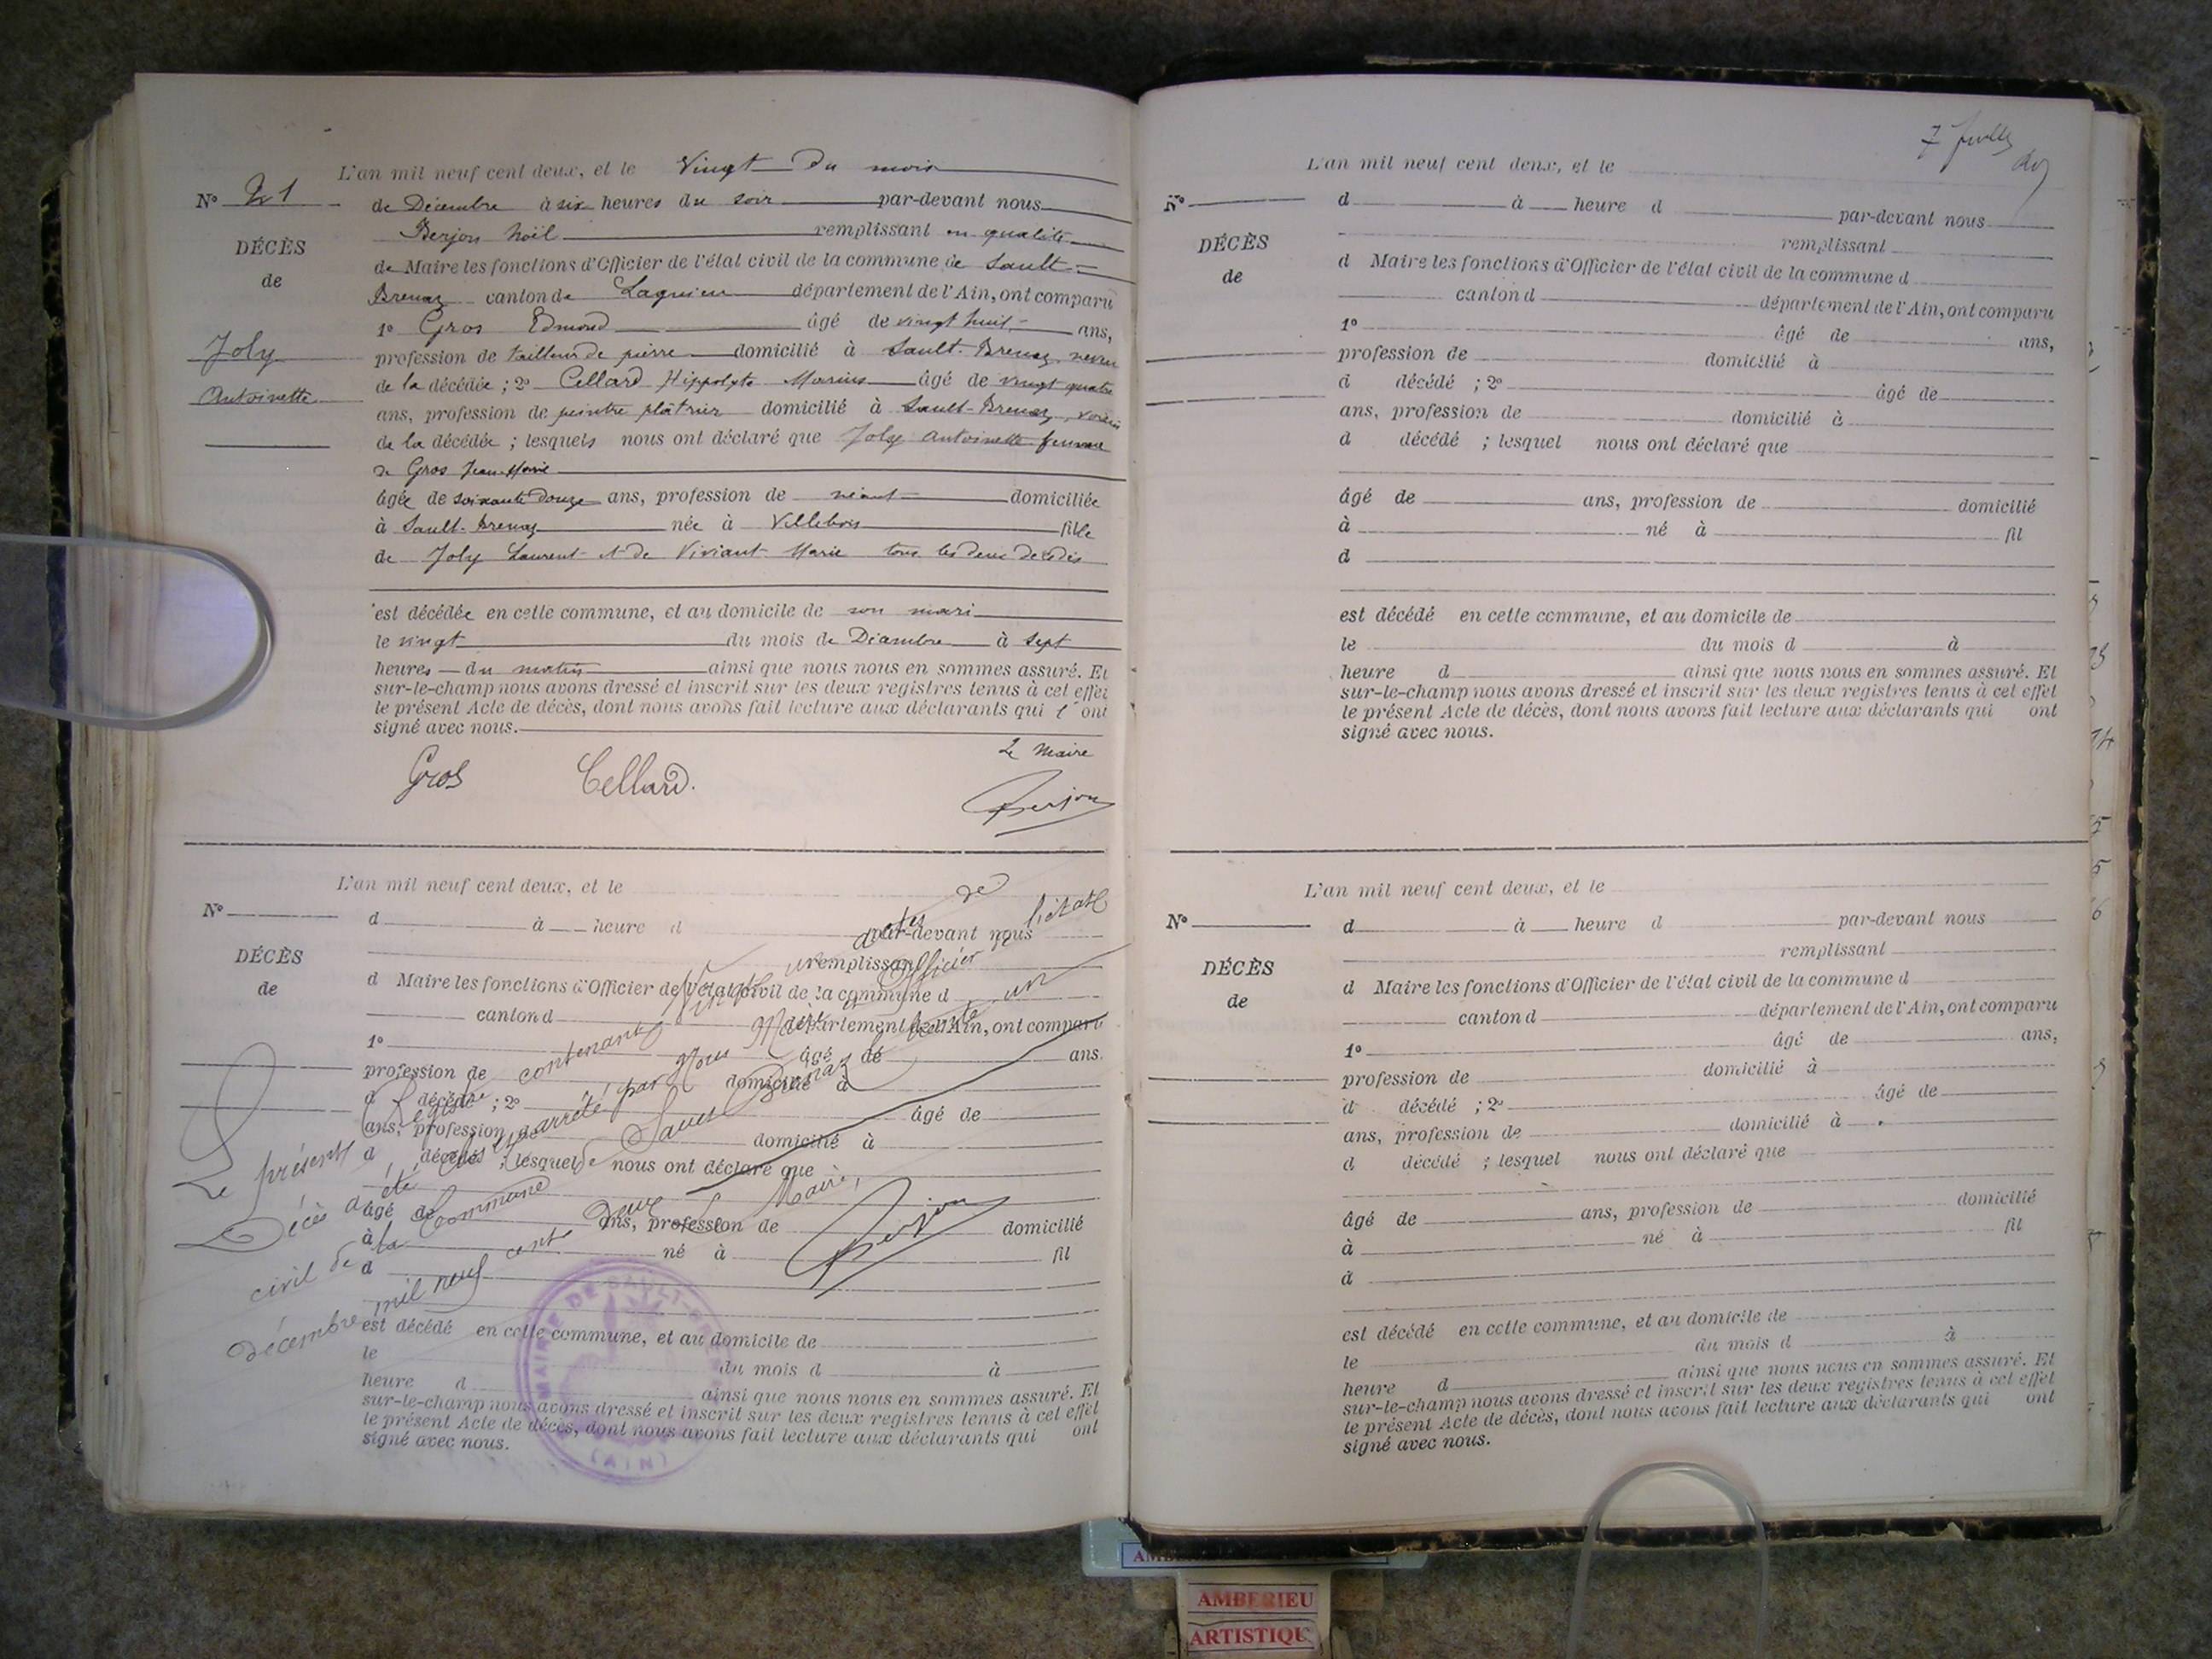 L'an mil neuf cent deux, et le Vingt du mois
N° 21
de Décembre à six heures du soir par-devant nous
Berjon Noël remplissant en qualité
DÉCÈS
de Maire les fonctions d'Officier de l'état civil de la commune de Sault-
de
Brenaz canton de Lagnieu département de l'Ain, ont comparu
1° Gros Edmond âgé de vingt huit ans,
Joly
profession de tailleur de pierre domicilié à Sault-Brenaz, neveu
Antoinette
de la décédée ; 2° Cellard Hippolyte Marius âgé de vingt quatre
ans, profession de peintre plâtrier domicilié à Sault-Brenaz, voisin
de la décédée ; lesquels nous ont déclaré que Joly Antoinette femme
de Gros Jean-Marie
âgée de soixante douze ans, profession de néant domiciliée
à Sault-Brenaz née à Villebois fille
de Joly Laurent et de Viviant Marie tous les deux décédés
est décédée en cette commune, et au domicile de son mari
le vingt du mois de Décembre à sept
heures du matin ainsi que nous nous en sommes assuré. Et
sur-le-champ nous avons dressé et inscrit sur les deux registres tenus à cet effet
le présent Acte de décès, dont nous avons fait lecture aux déclarants qui l'ont
signé avec nous.
Le Maire
Gros Cellard. Berjon
L'an mil neuf cent deux, et le
N°
d à heure d par-devant nous
remplissant
DÉCÈS
d Maire les fonctions d'Officier de l'état civil de la commune d
de
canton d département de l'Ain, ont comparu
1° âgé de ans,
profession de domicilié à
d décédé ; 2° âgé de
ans, profession de domicilié à
d décédé ; lesquel nous ont déclaré que
âgé de ans, profession de domicilié
à né à fil
d
est décédé en cette commune, et au domicile de
le du mois d à
heure d ainsi que nous nous en sommes assuré. Et
sur-le-champ nous avons dressé et inscrit sur les deux registres tenus à cet effet
le présent Acte de décès, dont nous avons fait lecture aux déclarants qui ont
signé avec nous.
Le présent Registre contenant Vingt un actes de
Décès a été clos et arrêté par Nous Maire et Officier de l'état
civil de la Commune de Sault Brenaz le trente un
Décembre mil neuf cent deux Le Maire,
Berjon
MAIRIE DE SAULT-BRENAZ
(AIN)
7 
L'an mil neuf cent deux, et le
N°
d à heure d par-devant nous
remplissant
DÉCÈS
d Maire les fonctions d'Officier de l'état civil de la commune d
de
canton d département de l'Ain, ont comparu
1° âgé de ans,
profession de domicilié à
d décédé ; 2° âgé de
ans, profession de domicilié à
d décédé ; lesquel nous ont déclaré que
âgé de ans, profession de domicilié
à né à fil
d
est décédé en cette commune, et au domicile de
le du mois d à
heure d ainsi que nous nous en sommes assuré. Et
sur-le-champ nous avons dressé et inscrit sur les deux registres tenus à cet effet
le présent Acte de décès, dont nous avons fait lecture aux déclarants qui ont
signé avec nous.
L'an mil neuf cent deux, et le
N°
d à heure d par-devant nous
remplissant
DÉCÈS
d Maire les fonctions d'Officier de l'état civil de la commune d
de
canton d département de l'Ain, ont comparu
1° âgé de ans,
profession de domicilié à
d décédé ; 2° âgé de
ans, profession de domicilié à
d décédé ; lesquel nous ont déclaré que
âgé de ans, profession de domicilié
à né à fil
d
est décédé en cette commune, et au domicile de
le du mois d à
heure d ainsi que nous nous en sommes assuré. Et
sur-le-champ nous avons dressé et inscrit sur les deux registres tenus à cet effet
le présent Acte de décès, dont nous avons fait lecture aux déclarants qui ont
signé avec nous.
AMBERIEU
ARTISTIQU